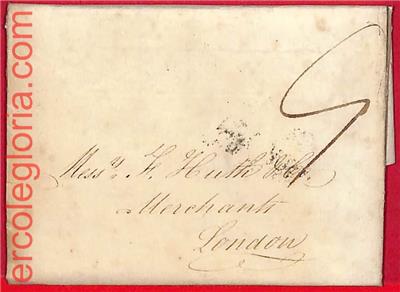 ercolegloria.com
Messrs. F. Huth & Co.
Merchants
London